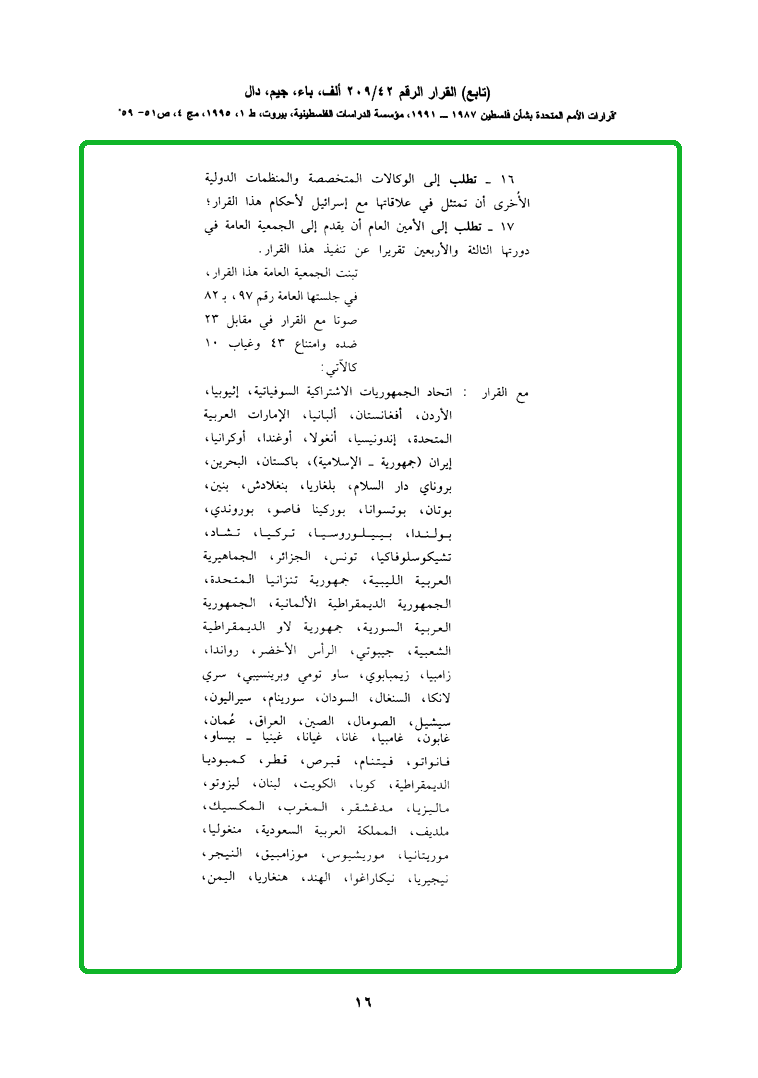 (تابع) القرار الرقم ٢٠٩/٤٢ ألف، باء، جيم، دال
"قرارات الأمم المتحدة بشأن فلسطين ١٩٨٧ ــ ١٩٩١، مؤسسة الدراسات الفلسطينية، بيروت، ط ١، ١٩٩٥، مج ٤، ص٥١- ٥٩"
١٦ ـ تطلب إلى الوكالات المتخصصة والمنظمات الدولية
الأُخرى أن تمتثل في علاقاتها مع إسرائيل لأحكام هذا القرار؛
١٧ ـ تطلب إلى الأمين العام أن يقدم إلى الجمعية العامة في
دورتها الثالثة والأربعين تقريرا عن تنفيذ هذا القرار.
تبنت الجمعية العامة هذا القرار،
في جلستها العامة رقم ٩٧، بـ ٨٢
صوتا مع القرار في مقابل ٢٣
ضده وامتناع ٤٣ وغياب ١٠
كالآتي:
مع القرار : اتحاد الجمهوريات الاشتراكية السوفياتية، إثيوبيا،
الأردن، أفغانستان، ألبانيا، الإمارات العربية
المتحدة، إندونيسيا، أنغولا، أوغندا، أوكرانيا،
إيران (جمهورية ـ الإسلامية)، باكستان، البحرين،
بروناي دار السلام، بلغاريا، بنغلادش، بنين،
بوتان، بوتسوانا، بوركينا فاصو، بوروندي،
بولندا، بييلوروسيا، تركيا، تشاد،
تشيكوسلوفاكيا، تونس، الجزائر، الجماهيرية
العربية الليبية، جمهورية تنزانيا المتحدة،
الجمهورية الديمقراطية الألمانية، الجمهورية
العربية السورية، جمهورية لاو الديمقراطية
الشعبية، جيبوتي، الرأس الأخضر، رواندا،
زامبيا، زيمبابوي، ساو تومي وبرينسيبي، سري
لانكا، السنغال، السودان، سورينام، سيراليون،
سيشيل، الصومال، الصين، العراق، عُمان،
غابون، غامبيا، غانا، غيانا، غينيا ـ بيساو،
فانواتو، فيتنام، قبرص، قطر، كمبوديا
الديمقراطية، كوبا، الكويت، لبنان، ليزوتو،
ماليزيا، مدغشقر، المغرب، المكسيك،
ملديف، المملكة العربية السعودية، منغوليا،
موريتانيا، موريشيوس، موزامبيق، النيجر،
نيجيريا، نيكاراغوا، الهند، هنغاريا، اليمن،
١٦